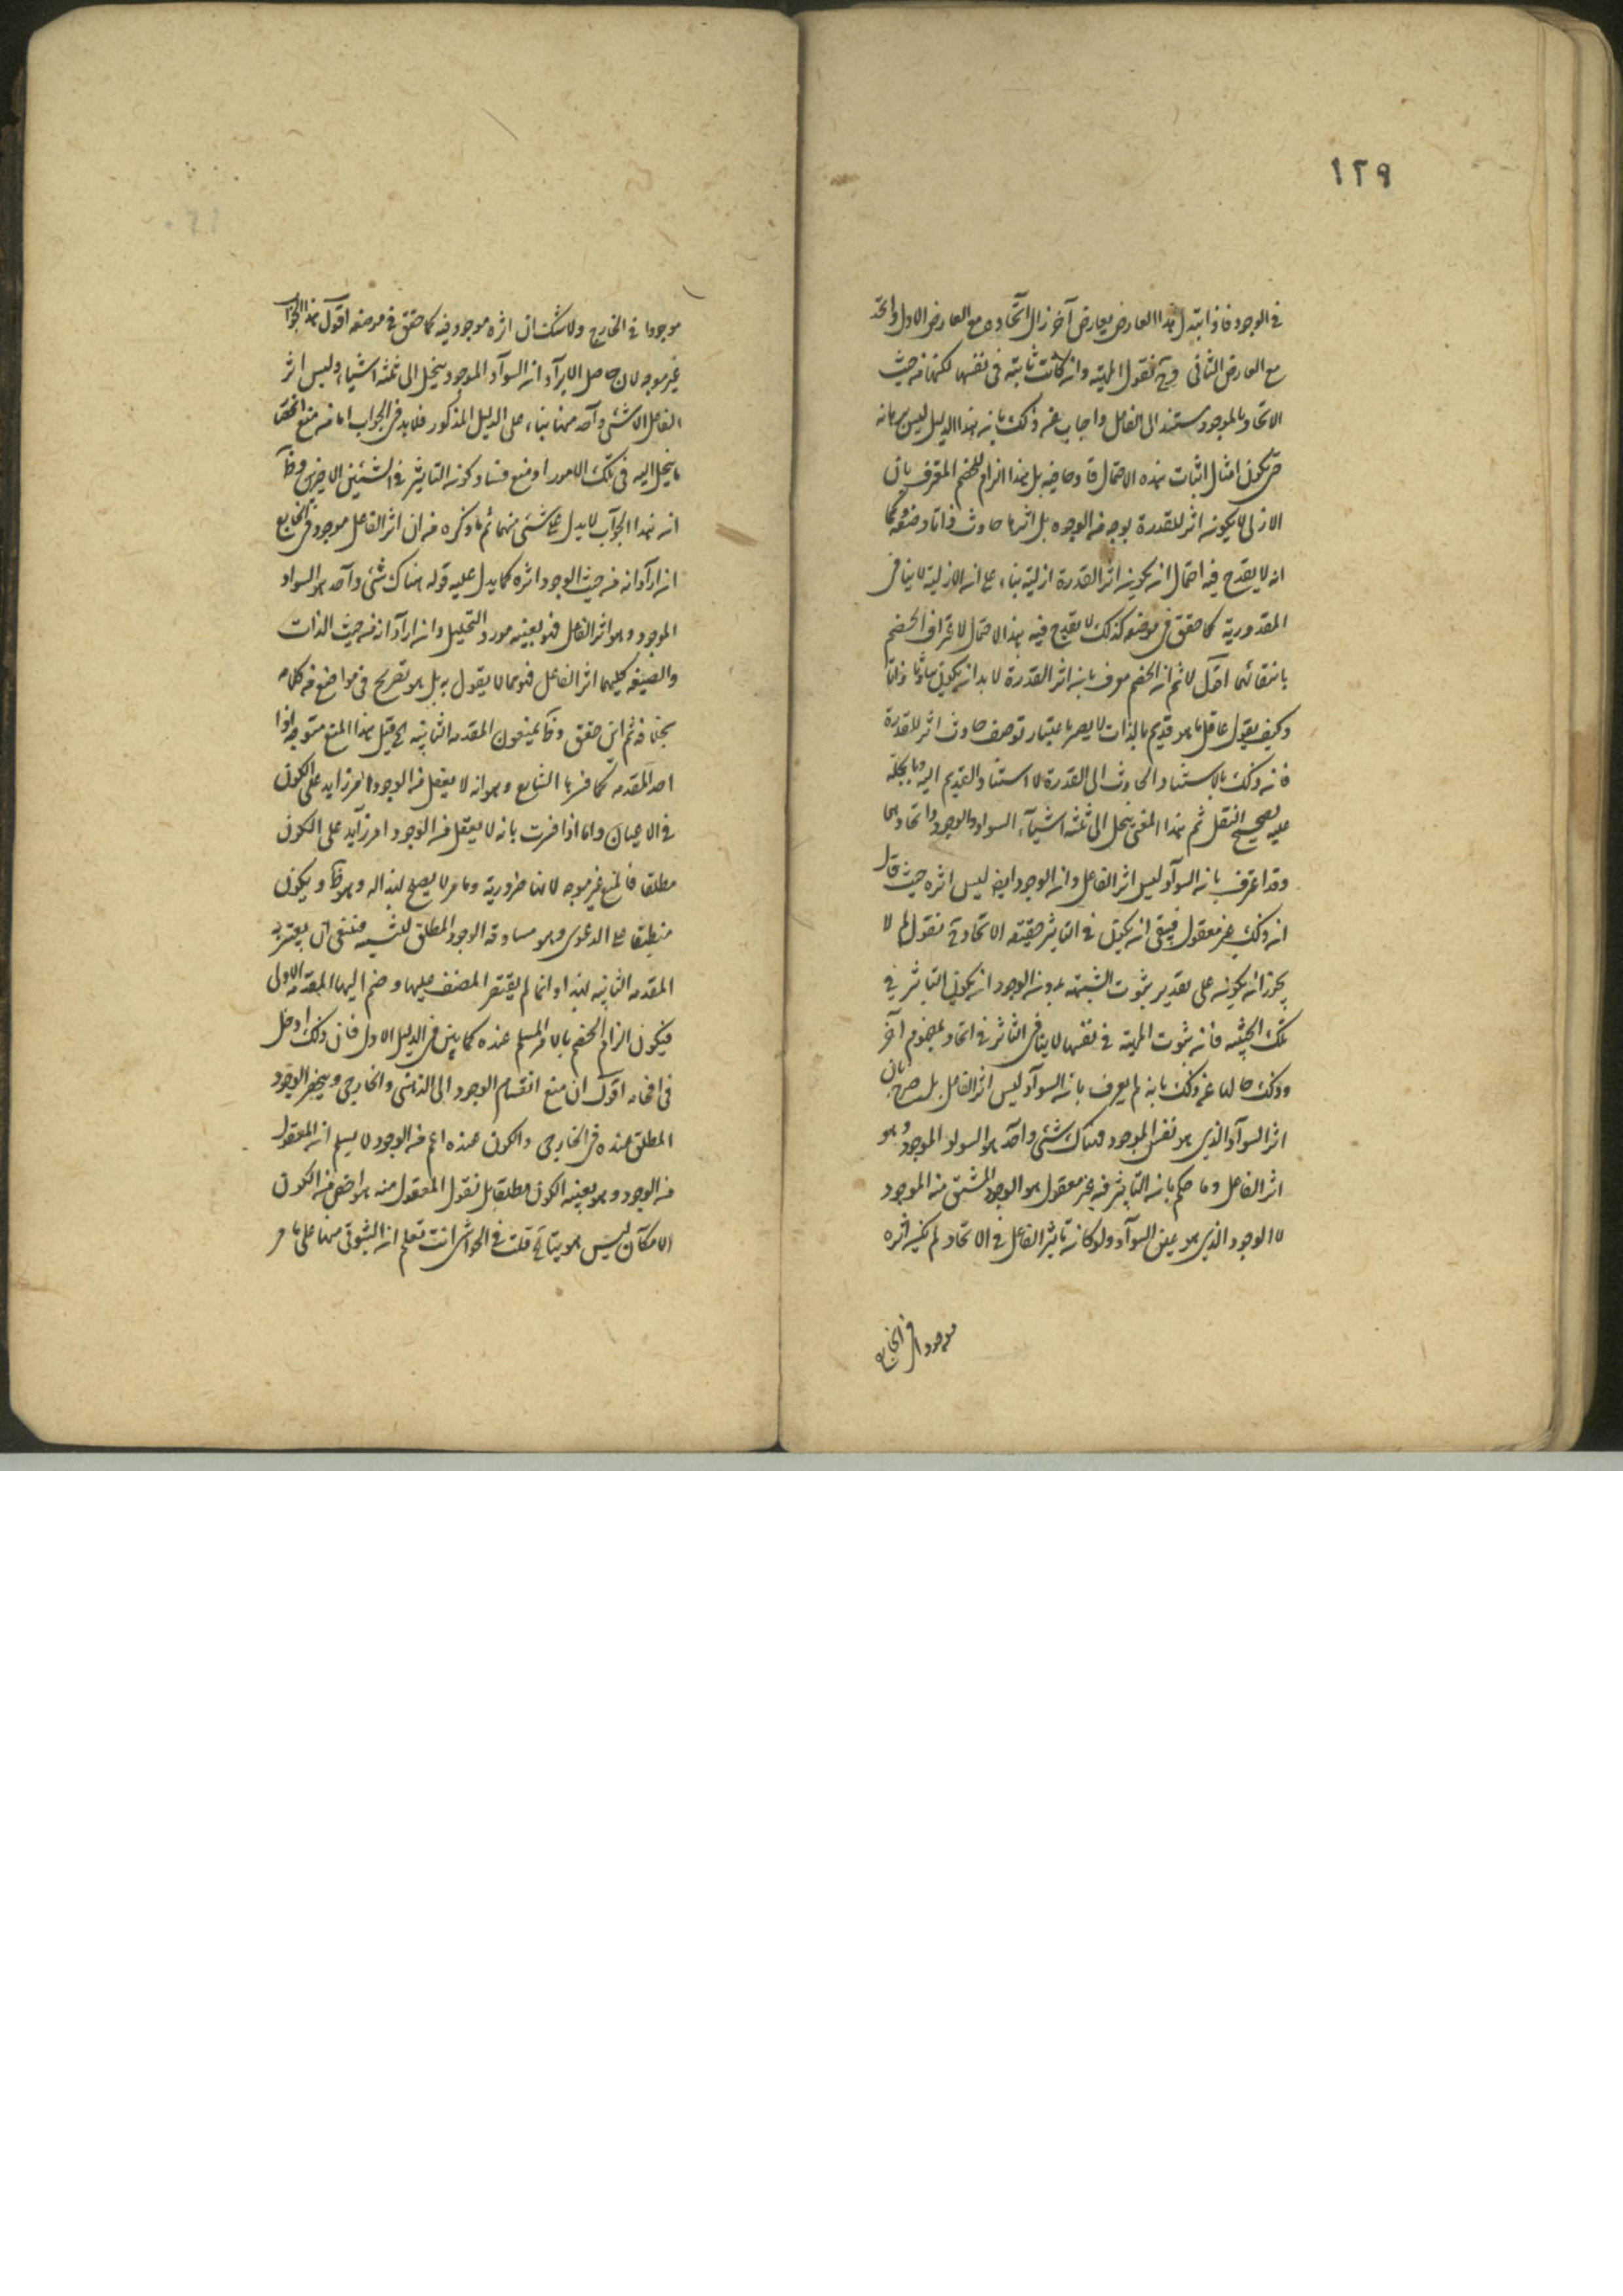 ١٢٩
في الوجود فاذا تبدل هذا العارض بعارض آخر زال اتحاده مع العارض الاول واتحد
مع العارض الثاني وح نقول المهية وان كانت ثابتة في نفسها لكنها من حيث
الاتحاد بالموجود مستند الى الفاعل واجاب عن ذلك بانه هذا الدليل ليس برهانه
حتى يكون امثال اثبات هذه الاحتمال قادحا فيه بل هذا الزام للخصم المعترف بان
الازلي لا يكون اثر للقدرة بوجه من الوجوه بل اثرها حادث ذاتا وصفة وكما
انه لا يقدح فيه احتمال ان يكون اثر القدرة ازلية بناء على ان الازلية لا ينافي
المقدورية كما حقق في موضعه كذلك لا يقدح فيه هذا الاحتمال لاعتراف الخصم
بانتفائهما اقول لا ثم ان الخصم معرف بان اثر القدرة لا بد ان يكون حادثا ذاتا
وكيف يقول عاقل ما هو قديم بالذات لا يصير باعتبار توصف حادث اثر للقدرة
فان ذلك بالاستناد الحادث الى القدرة لا استناد القديم اليه وبالجملة
عليه تصحيح النقل ثم هذا المعنى ينحل الى ثلثه اشياء السواد والوجود واتحادهما
وقد اعترف بان السواد ليس اثر الفاعل وان الوجود ايضا ليس اثره حيث قال
ان ذلك غير معقول فبقى ان يكون في التاثير حقيقته الاتحاد وح نقول لم لا
يجوز ان يكون على تقدير ثبوت الشيئية بدون الوجود ان يكون التاثير في
تلك الحيثية فان ثبوت المهية في نفسها لا ينافي التاثر في اتحاد بمفهوم آخر
وذلك حالما عن ذلك بانه لم يعرف بان السواد ليس اثر الفاعل بل صرح بان
اثر السواد الذي هو نفس الموجود فهناك شئ واحد هو السواد الموجود وهو
اثر الفاعل وما حكم بان التاثير فيه غير معقول هو الوجود المشتق منه الموجود
لا الوجود الذي هو عين السواد ولو كان تاثير الفاعل في الاتحاد لم يكن اثره
موجودا في الخارج
موجودا في الخارج ولا شك ان اثره موجود فيه كما حقق في موضعه اقول هذا الجواب
غير موجه لان حاصل الايراد ان السواد الموجود ينحل الى ثلثه اشياء وليس اثر
الفاعل الا شئ واحد منها بناء على الدليل المذكور فلا بد في الجواب اما من منع انحصار
ما ينحل اليه في تلك الامور او منع فساد كون التاثير في الشيئين الاخيرين وظاهر
ان هذا الجواب لا يدل على شئ منهما ثم ما ذكره من ان اثر الفاعل موجود في الخارج
ان اراد انه من حيث الوجود اثره كما يدل عليه قوله هناك شئ واحد هو السواد
الموجود وهو اثر الفاعل فهو بعينه مورد التحليل وان اراد انه من حيث الذات
والصفة كليهما اثر الفاعل فهو مما لا يقول به بل هو تصريح في مواضع من كلامه
بخلافه ثم اين حقق وقد يمنعون المقدمه الثانية الخ قيل هذا المنع متوجه اذا
احد المقدمه كما فسرها الشارح وهو انه لا يعقل من الوجود امر زايد على الكون
في الاعيان واما اذا فسرت بانه لا يعقل من الوجود امر زايد على الكون
مطلقا فالمنع غير موجه لانها ضرورية وما مر لا يصلح سندا له وهو ظ ويكون
منطبقا على الدعوى وهو مساوقة الوجود المطلق للشيئية فينبغي ان يعتبر
المقدمه الثانية هذا وانما لم يقتصر المصنف عليها وضم اليها المقدمه الاولى
فيكون الزام الخصم بالامر المسلم عنده كما بين في الدليل الاول فان ذلك ادخل
في افحامه اقول ان منع انقسام الوجود الى الذهني والخارجي وينحصر الوجود
المطلق عنده في الخارجي والكون عنده اعم من الوجود لا يسلم ان المعقول
من الوجود وهو بعينه الكون مطلقا بل نقول المعقول منه هو اخص من الكون
الامكان ليس هو بيتا ح قلت في الحواشي انت تعلم ان الثبوتي منها على ما مر